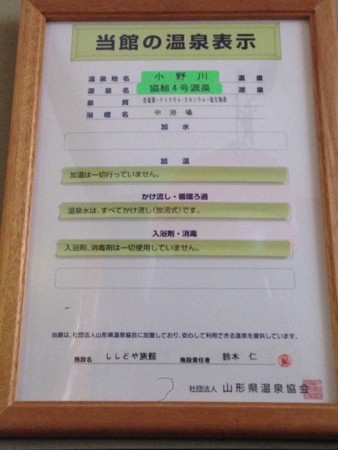 当館の温泉表示
温泉地名 小野川 温泉
源泉名 協組4号源泉
泉質 含硫黄-ナトリウム・カルシウム-塩化物泉
浴槽名 中浴場
加水
加温
加温は一切行っていません。
かけ流し・循環ろ過
温泉水は、すべてかけ流し(放流式)です。
入浴剤・消毒
入浴剤、消毒剤は一切使用していません。
当館は、社団法人山形県温泉協会に加盟しており、安心して利用できる温泉を提供しています。
施設名 ししどや旅館 施設責任者 鈴木 仁
社団法人 山形県温泉協会